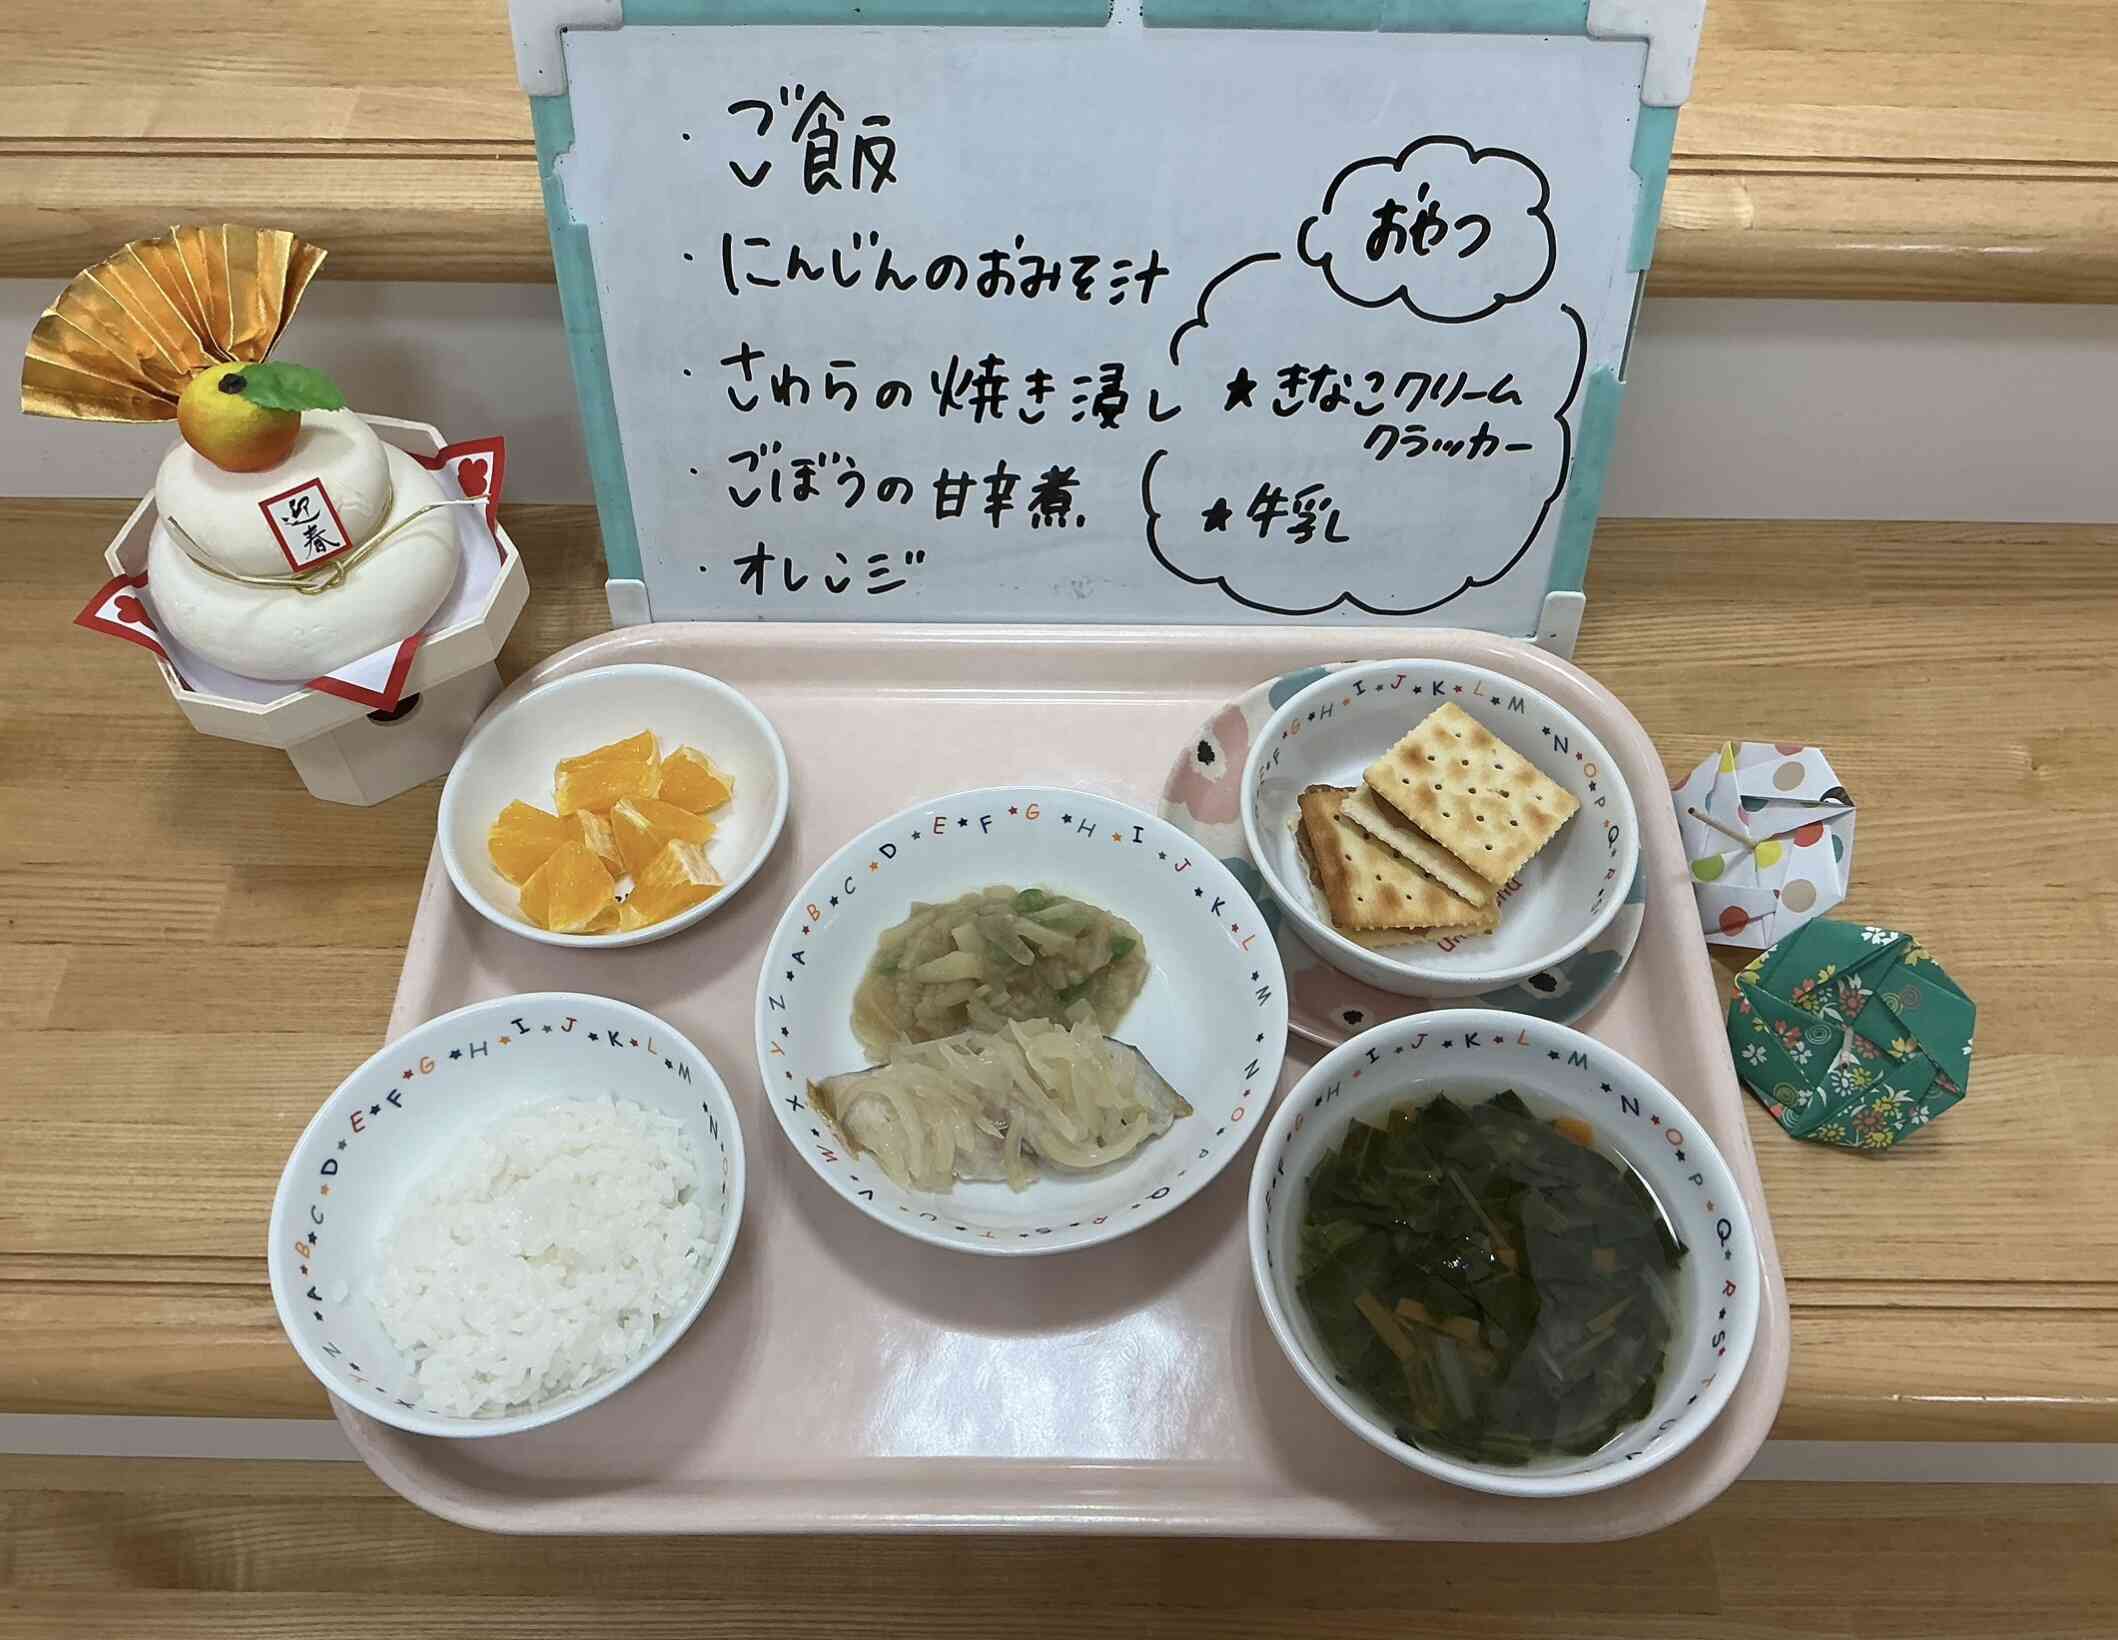 ・ご飯
・にんじんのおみそ汁
・さわらの焼き漬し
・ごぼうの甘辛煮
・オレンジ
おやつ
★きなこクリーム
クラッカー
★牛乳
迎春
E F G H I J K L M N O P Q R S
A B C D E F G H I J K L M N O P Q R S T U V W X Y Z
A B C D E F G H I J K L M N
E F G H I J K L M N O P Q R S